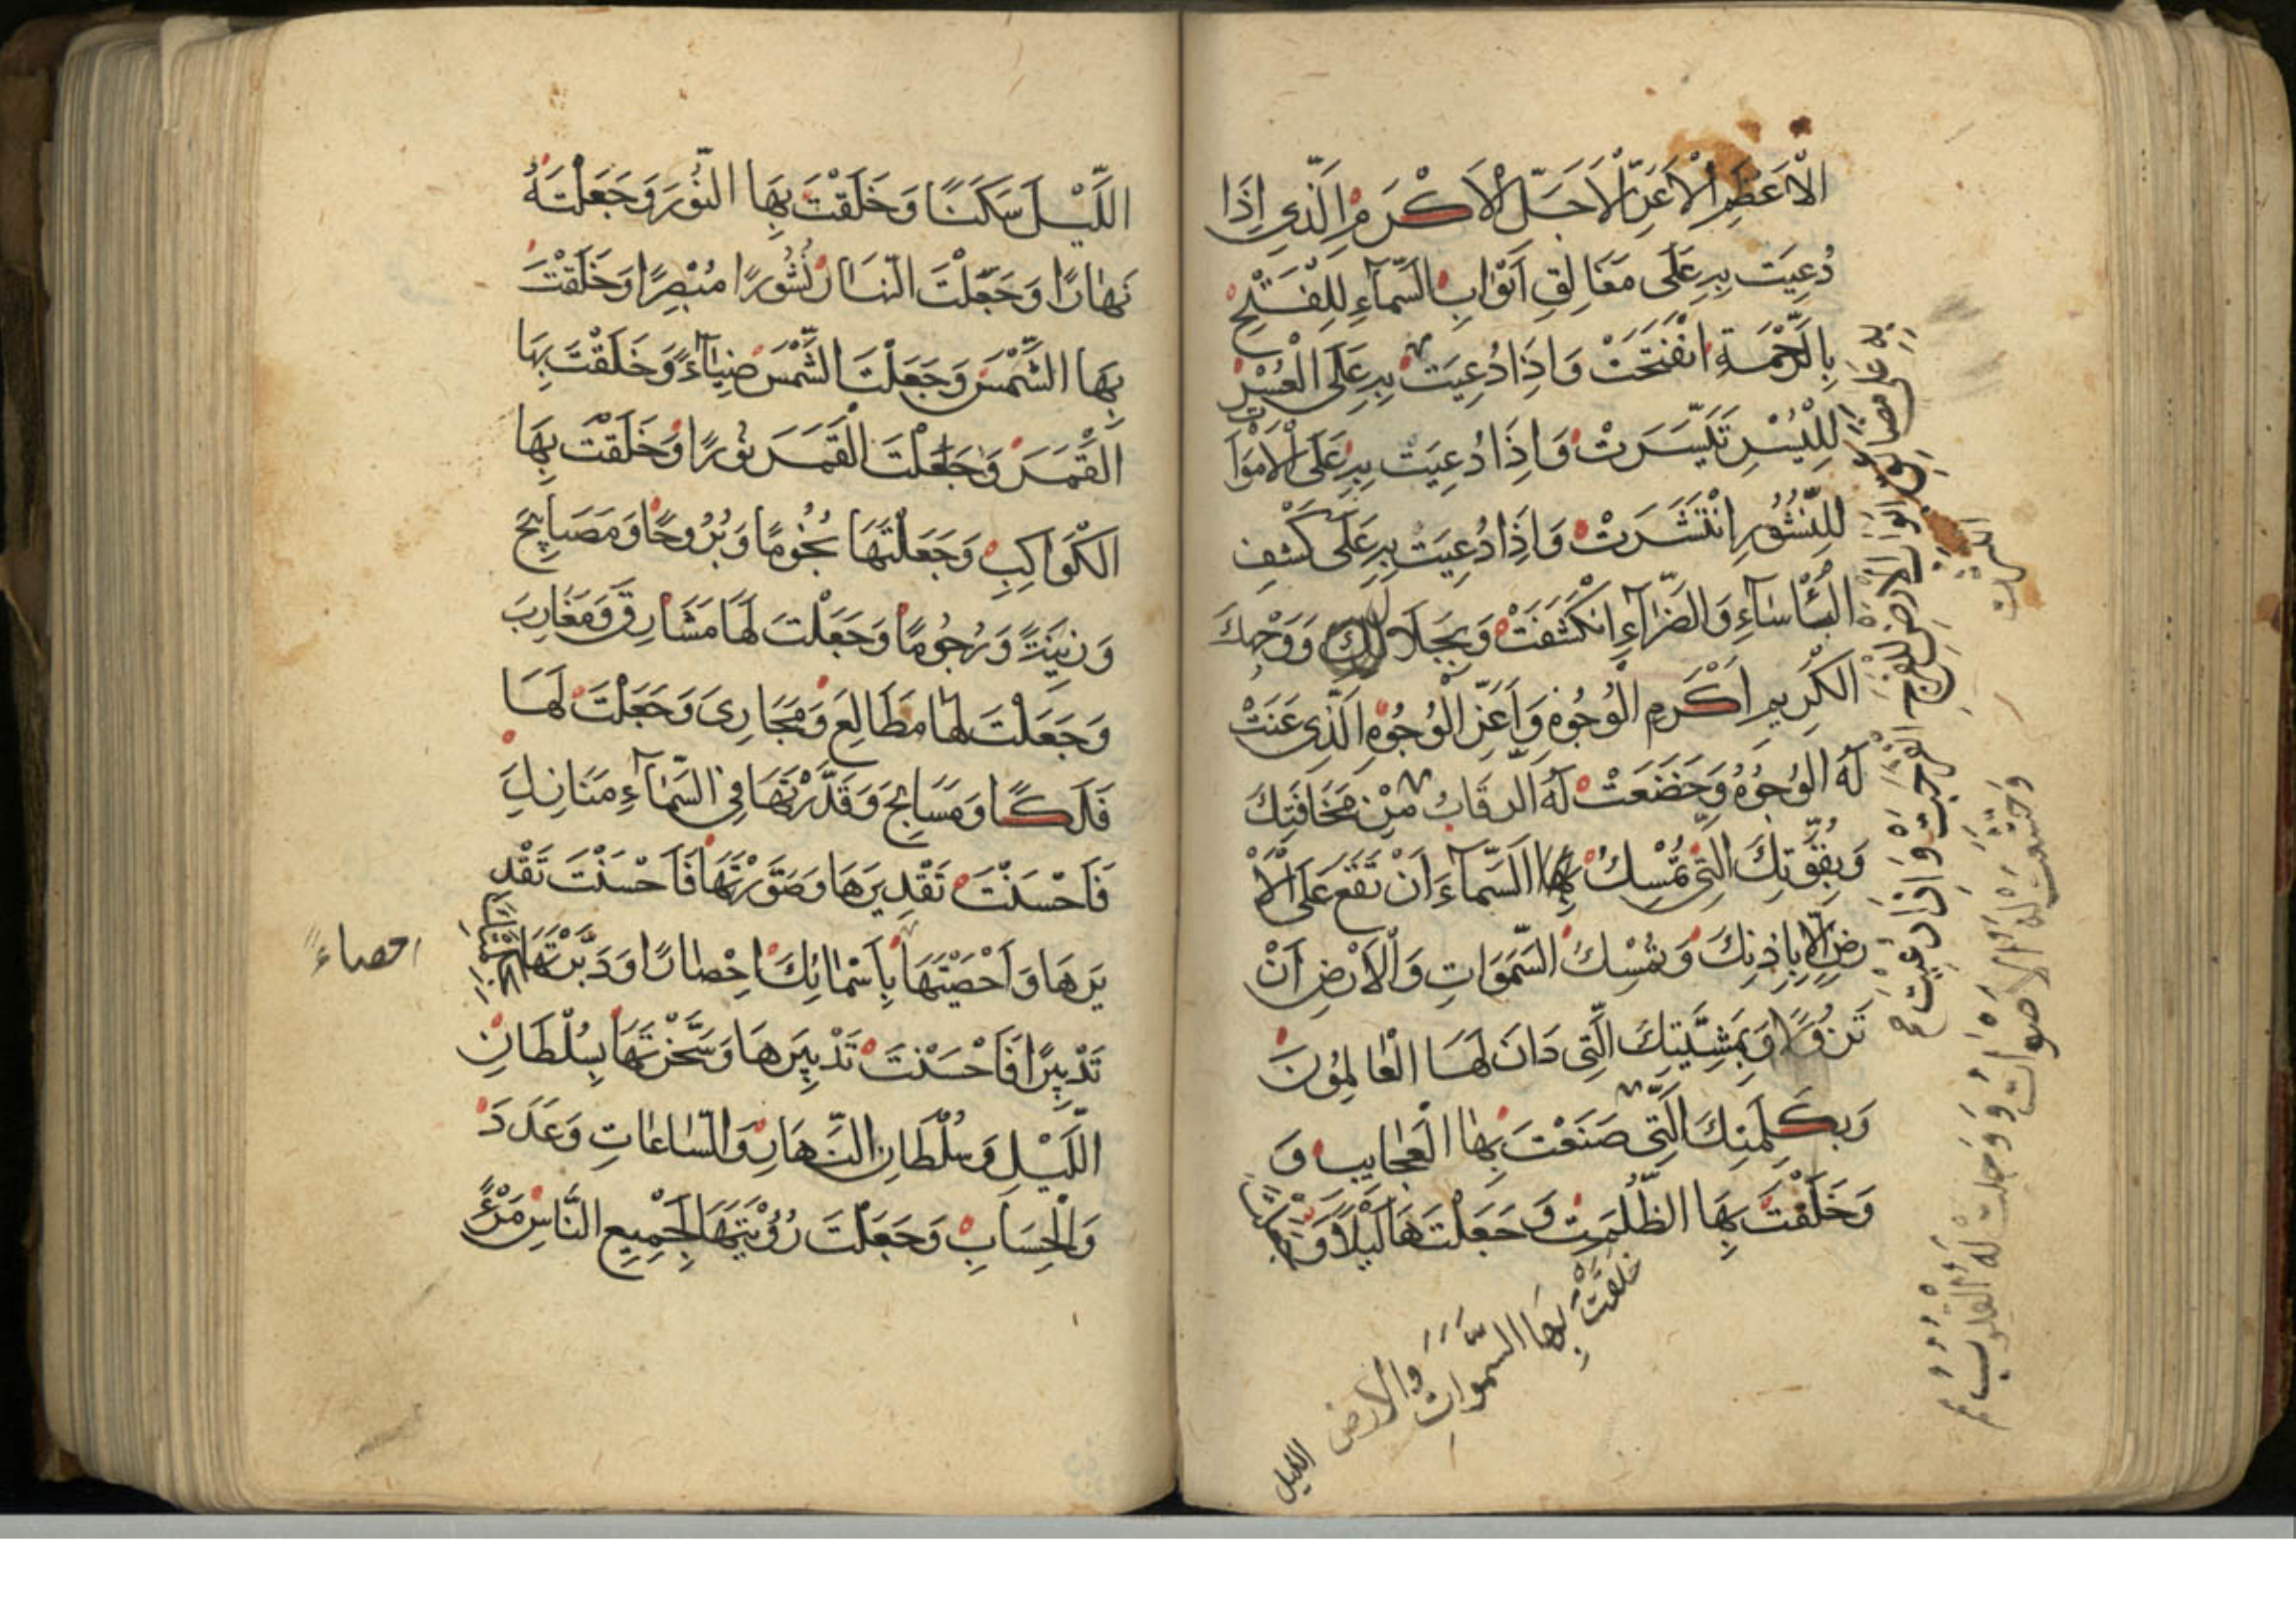 الْاَعْظَمِ الْاَعَزِّ الْاَجَلِّ الْاَكْرَمِ الَّذِي اِذَا
دُعِيَتَ بِهِ عَلَى مَغَالِقِ اَبْوَابِ السَّمَآءِ لِلْفَتْحِ
بِالرَّحْمَةِ انْفَتَحَتْ وَاِذَا دُعِيَتَ بِهِ عَلَى الْعُسْرِ
لِلْيُسْرِ تَيَسَّرَتْ وَاِذَا دُعِيَتَ بِهِ عَلَى الْاَمْوَاتِ
لِلنُّشُورِ انْتَشَرَتْ وَاِذَا دُعِيَتَ بِهِ عَلَى كَشْفِ
الْبَأْسَآءِ وَالضَّرَّآءِ انْكَشَفَتْ وَبِجَلَالِ وَوَجْهِكَ
الْكَرِيمِ اَكْرَمِ الْوُجُوهِ وَاَعَزِّ الْوُجُوهِ الَّذِي عَنَتْ
لَهُ الْوُجُوهُ وَخَضَعَتْ لَهُ الرِّقَابُ مِنْ مَخَافَتِكَ
وَبِقُوَّتِكَ الَّتِي تُمْسِكُ بِهَا السَّمَآءَ اَنْ تَقَعَ عَلَى الْاَ
رْضِ اِلَّا بِاِذْنِكَ وَتُمْسِكُ السَّمَوَاتِ وَالْاَرْضَ اَنْ
تَزُولَا وَبِمَشِيَّتِكَ الَّتِي دَانَ لَهَا الْعَالَمُونَ
وَبِكَلِمَتِكَ الَّتِي صَنَعْتَ بِهَا الْعَجَايِبَ وَ
وَخَلَقْتَ بِهَا الظُّلْمَةَ وَجَعَلْتَهَا لَيْلًا وَ
خَلَقْتَ بِهَا السَّمَوَاتِ وَالْاَرْضَ
الليل
بِهِ عَلَى مضايق ابواب الارض للفرج انفرجت وَاِذَا دُعِيتَ
وَخَشَعَتْ لَهُ الْاَصْوَاتُ وَوَجِلَتْ لَهُ الْقُلُوبُ
اللَّيْلَ سَكَنًا وَخَلَقْتَ بِهَا النُّورَ وَجَعَلْتَهُ
نَهَارًا وَجَعَلْتَ النَّهَارَ نُشُورًا مُبْصِرًا وَخَلَقْتَ
بِهَا الشَّمْسَ وَجَعَلْتَ الشَّمْسَ ضِيَآءً وَخَلَقْتَ بِهَا
الْقَمَرَ وَجَعَلْتَ الْقَمَرَ نُورًا وَخَلَقْتَ بِهَا
الْكَوَاكِبَ وَجَعَلْتَهَا نُجُومًا وَبُرُوجًا وَمَصَابِيحَ
وَزِينَةً وَرُجُومًا وَجَعَلْتَ لَهَا مَشَارِقَ وَمَغَارِبَ
وَجَعَلْتَ لَهَا مَطَالِعَ وَمَجَارِيَ وَجَعَلْتَ لَهَا
فَلَكًا وَمَسَابِحَ وَقَدَّرْتَهَا فِي السَّمَآءِ مَنَازِلَ
فَاَحْسَنْتَ تَقْدِيرَهَا وَصَوَّرْتَهَا فَاَحْسَنْتَ تَقْدِ
يرَهَا وَاَحْصَيْتَهَا بِاَسْمَائِكَ اِحْصَارًا وَدَبَّرْتَهَا
احصاءً
تَدْبِيرًا فَاَحْسَنْتَ تَدْبِيرَهَا وَسَخَّرْتَهَا بِسُلْطَانِ
اللَّيْلِ وَسُلْطَانِ النَّهَارِ وَالسَّاعَاتِ وَعَدَدَ
وَالْحِسَابِ وَجَعَلْتَ رُؤْيَتَهَا لِجَمِيعِ النَّاسِ مَرْءً